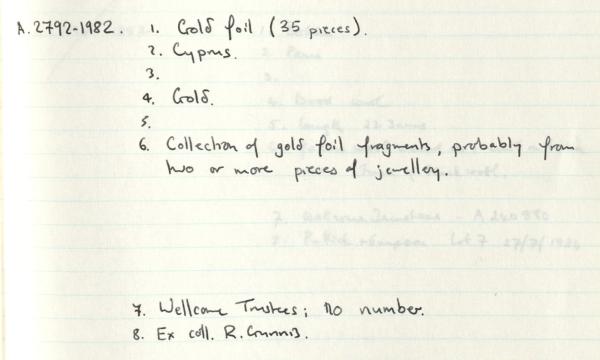 A.2792-1982. 1. Gold foil (35 pieces).
2. Cyprus.
3.
4. Gold.
5.
6. Collection of gold foil fragments, probably from
two or more pieces of jewellery.
7. Wellcome Trustees; no number.
8. Ex coll. R. Gunnis.